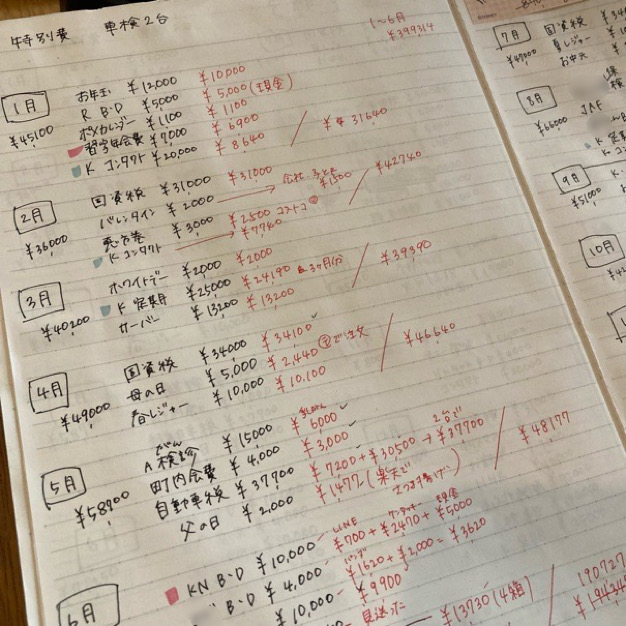 特別費 車検2台
1〜6月
¥399314
1月
¥45100
お年玉 ¥12,000 ¥10,000
R B·D ¥5000 ¥5,000(現金)
ポケカレンダー ¥1,100 ¥1100
習字年会費 ¥7,000 ¥6900
K コンタクト ¥20,000 ¥8640 / ¥31640
2月
¥36000
国資税 ¥31000 ¥31000
バレンタイン ¥2000 → 会社 ¥1500 / ¥42740
恵方巻 ¥3000 ¥2500 コストコ
K コンタクト → ¥7740
3月
¥40200
ホワイトデー ¥2000 ¥2000
K 定期 ¥25000 ¥24190 3ヶ月分 / ¥39390
サーバー ¥13200 ¥13200
4月
¥49000
国資税 ¥34000 ¥34100
母の日 ¥5,000 ¥2,440 で注文 / ¥46640
春レジャー ¥10,000 ¥10,100
5月
¥58900
がん
A 検診 ¥15000 ¥6000
町内会費 ¥4,000 ¥3,000
自動車税 ¥37700 ¥7200+¥30500 → 2台で ¥37700 / ¥48177
父の日 ¥2,000 ¥1477(楽天で
6月
KN B·D ¥10,000 LINE ¥700+¥2470+現金 ¥5000
B·D ¥4,000 ¥1620+¥2,000=¥3620
¥10,000 ¥9900
見送った
¥13730(4箱)
190727
7月
¥49000
国資税
夏レジャー
お中元
8月
¥66000
JAF
K 定期
K コン
9月
¥51000
10月